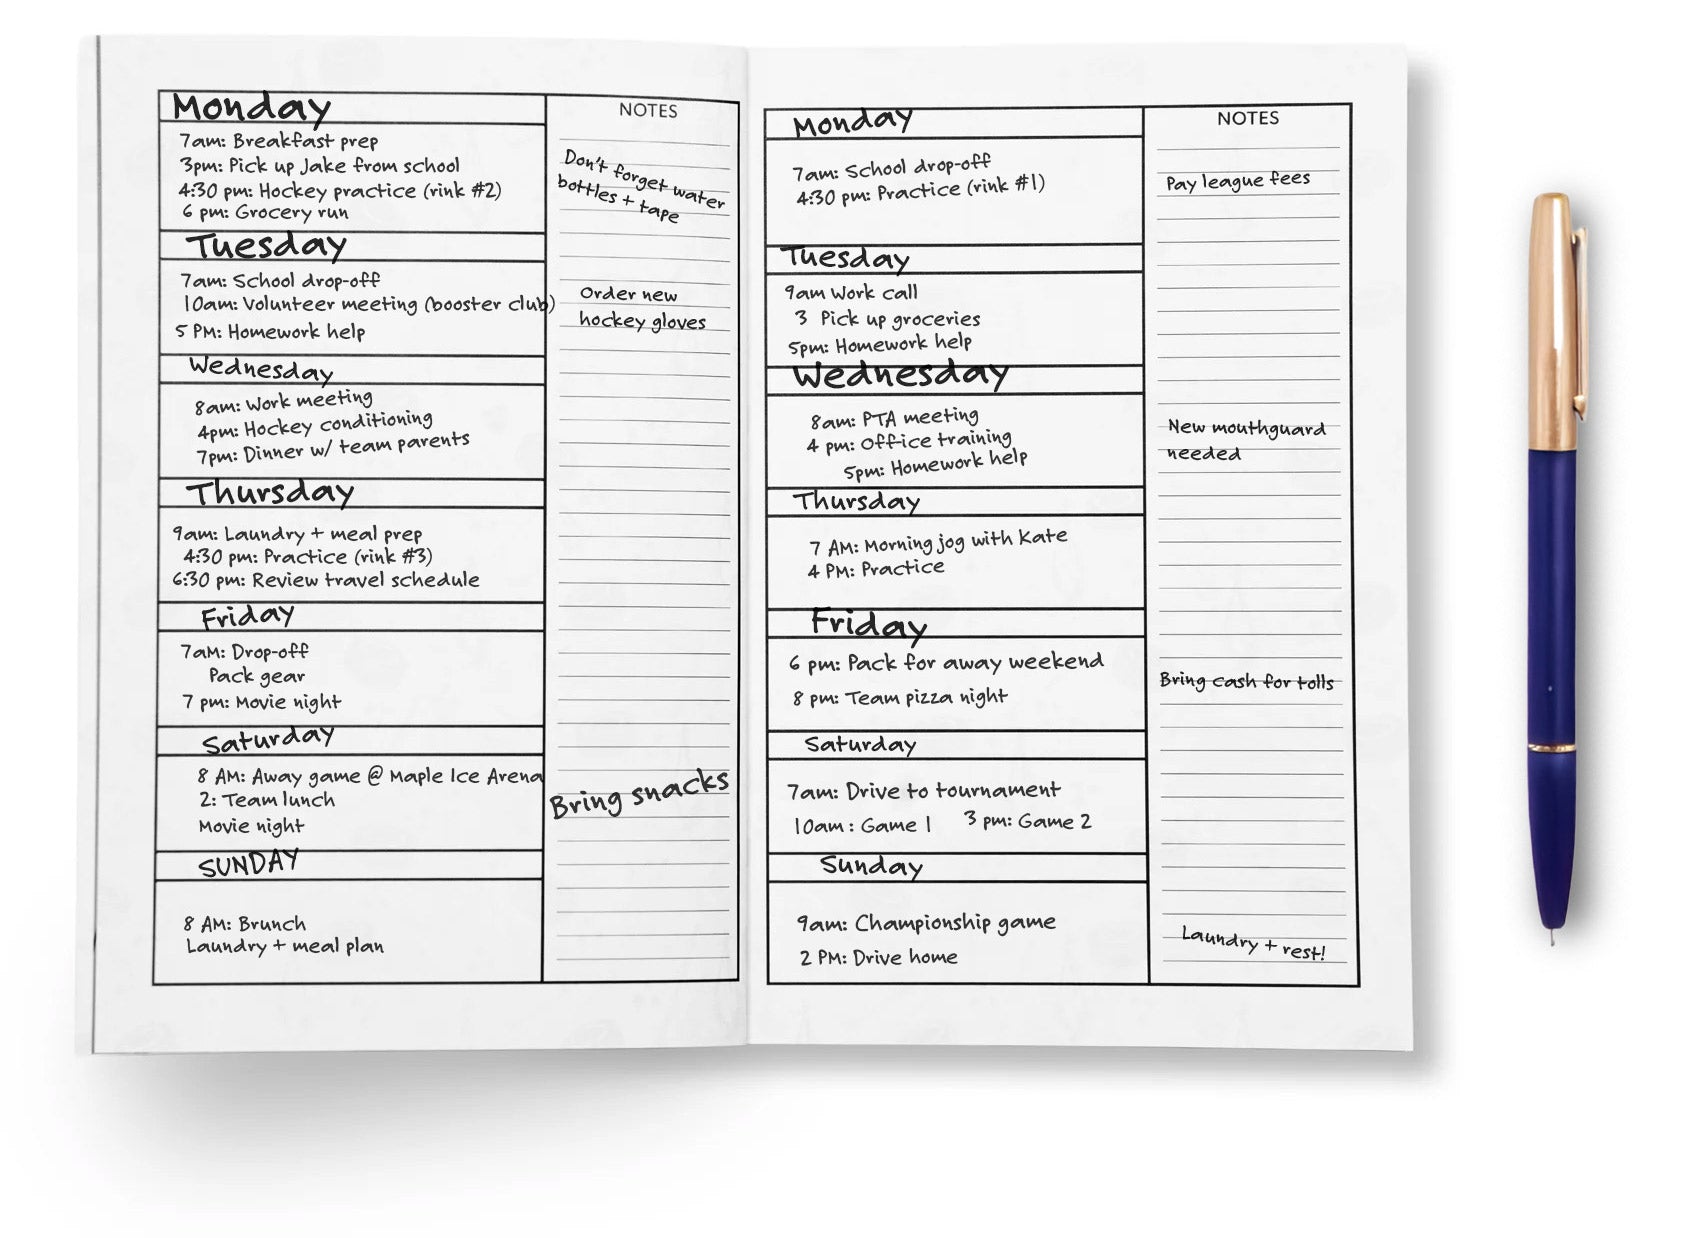 Monday
7am: Breakfast prep
3pm: Pick up Jake from school
4:30 pm: Hockey practice (rink #2)
6 pm: Grocery run
Tuesday
7am: School drop-off
10am: Volunteer meeting (booster club)
5 PM: Homework help
Wednesday
8am: Work meeting
4pm: Hockey conditioning
7pm: Dinner w/ team parents
Thursday
9am: Laundry + meal prep
4:30 pm: Practice (rink #3)
6:30 pm: Review travel schedule
Friday
7aM: Drop-off
Pack gear
7 pm: Movie night
Saturday
8 AM: Away game @ Maple Ice Arena
2: Team lunch
Movie night
SUNDAY
8 AM: Brunch
Laundry + meal plan
NOTES
Don't forget water
bottles + tape
Order new
hockey gloves
Bring snacks
Monday
7am: School drop-off
4:30 pm: Practice (rink #1)
Tuesday
9am Work call
3 Pick up groceries
5pm: Homework help
Wednesday
8am: PTA meeting
4 pm: Office training
5pm: Homework help
Thursday
7 AM: Morning jog with Kate
4 PM: Practice
Friday
6 pm: Pack for away weekend
8 pm: Team pizza night
Saturday
7am: Drive to tournament
10am: Game 1 3 pm: Game 2
Sunday
9am: Championship game
2 PM: Drive home
NOTES
Pay league fees
New mouthguard
needed
Bring cash for tolls
Laundry + rest!